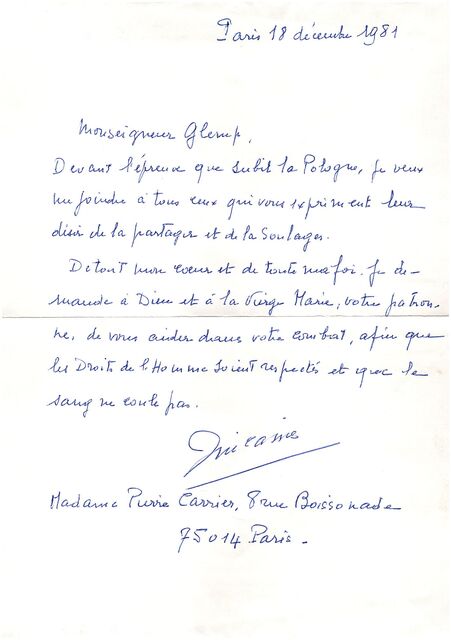 Paris 18 décembre 1981
Monseigneur Glemp,
Devant l'épreuve que subit la Pologne, je veux
me joindre à tous ceux qui vous expriment leur
désir de la partager et de la soulager.
De tout mon coeur et de toute ma foi. Je de-
mande à Dieu et à la Vierge Marie, votre patron-
ne, de vous aider dans votre combat, afin que
les Droits de l'Homme soient respectés et que le
sang ne coule pas.
Madame Pierre Carrier, 8 rue Boissonade
75014 Paris.